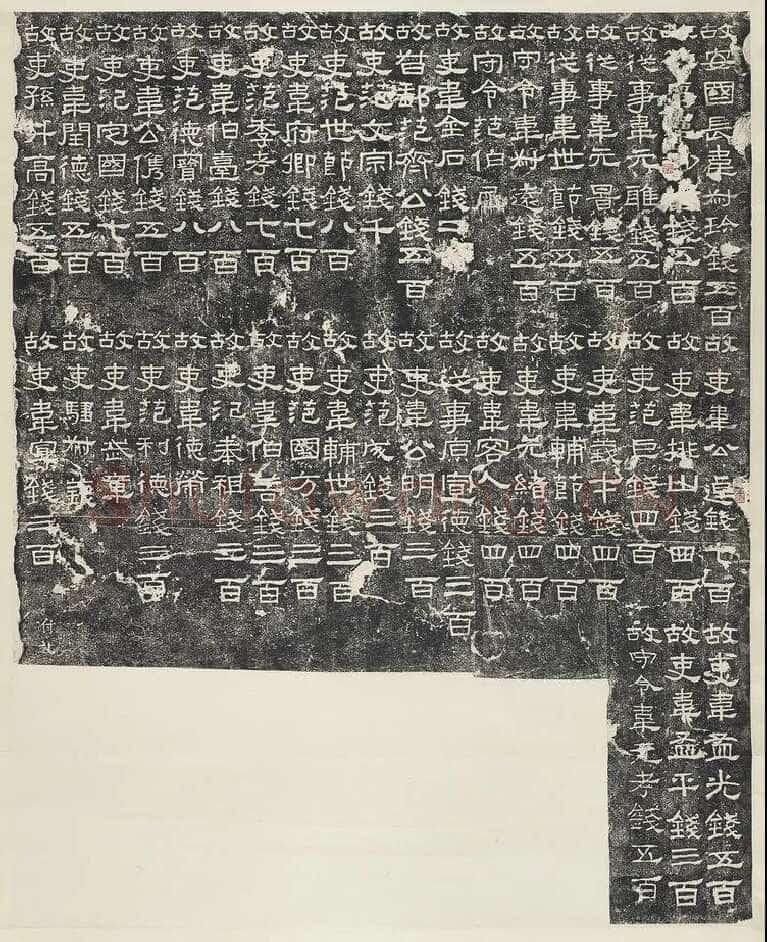 故安國長韋叔珍錢五百
故從事錢五百
故從事韋元雅錢五百
故從事韋元景錢五百
故從事韋世節錢五百
故守令韋叔遠錢五百
故守令范伯犀
故吏韋金石錢二
故督郵范齊公錢五百
故吏范文宗錢千
故吏范世節錢八百
故吏韋府卿錢七百
故吏范季考錢七百
故吏韋伯臺錢八百
故吏范德寶錢八百
故吏韋公儁錢五百
故吏氾定國錢七百
故吏韋閏德錢五百
故吏孫升高錢五百
故吏韋公逴錢七百
故吏韋排山錢四百
故吏范巨錢四百
故吏韋義才錢四百
故吏韋輔節錢四百
故吏韋元緒錢四百
故吏韋容人錢四百
故從事原宣德錢三百
故吏韋公明錢三百
故吏范成錢三百
故吏韋輔世錢三百
故吏范國方錢三百
故吏韋伯善錢三百
故吏氾奉祖錢三百
故吏韋德榮
故吏范利德錢三百
故吏韋武章
故吏騶叔義
故吏韋宣錢三百
故吏韋孟光錢五百
故吏韋孟平錢三百
故守令韋元考錢五百